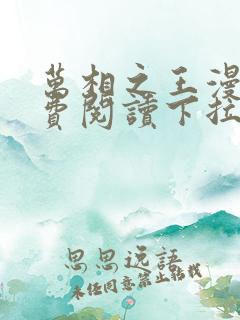 萬相之王漫
費閱讀下拉
思思说語
未经同意禁止转载